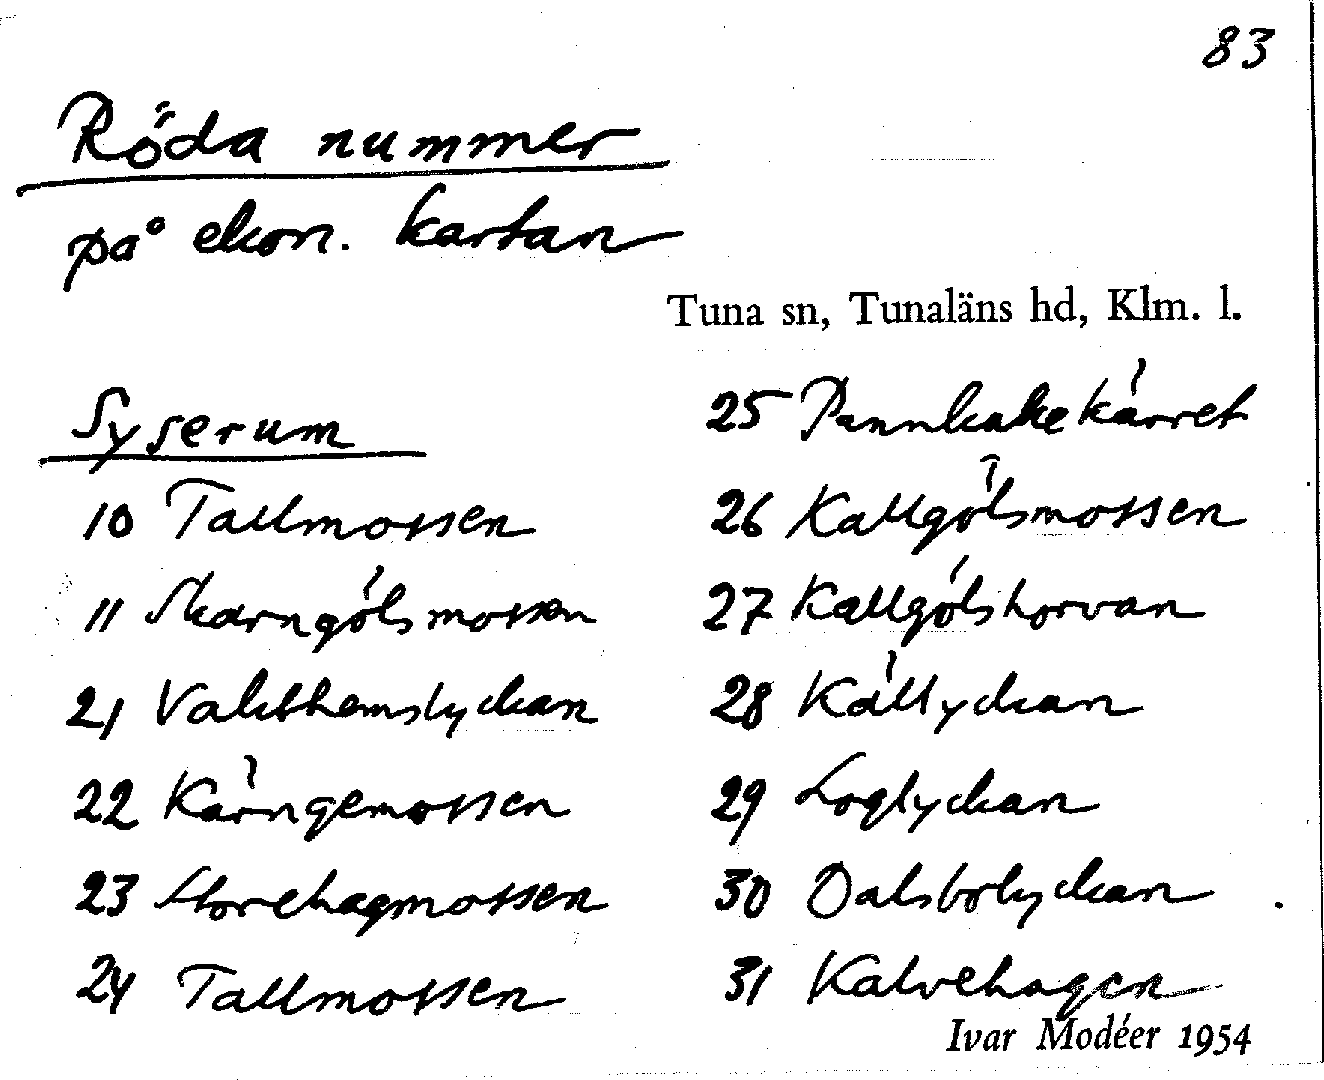 83
Röda nummer
på ekon. kartan
Tuna sn, Tunaläns hd, Klm. l.
Syserum
10 Tallmossen
11 Skärngölsmossen
21 Vakthemslyckan
22 Kärngemossen
23 Storehagmossen
24 Tallmossen
25 Pannkakekärret
26 Kallgölsmossen
27 Kallgölshorvan
28 Källyckan
29 Loglyckan
30 Dalsbolyckan
31 Kalvehagen
Ivar Modéer 1954